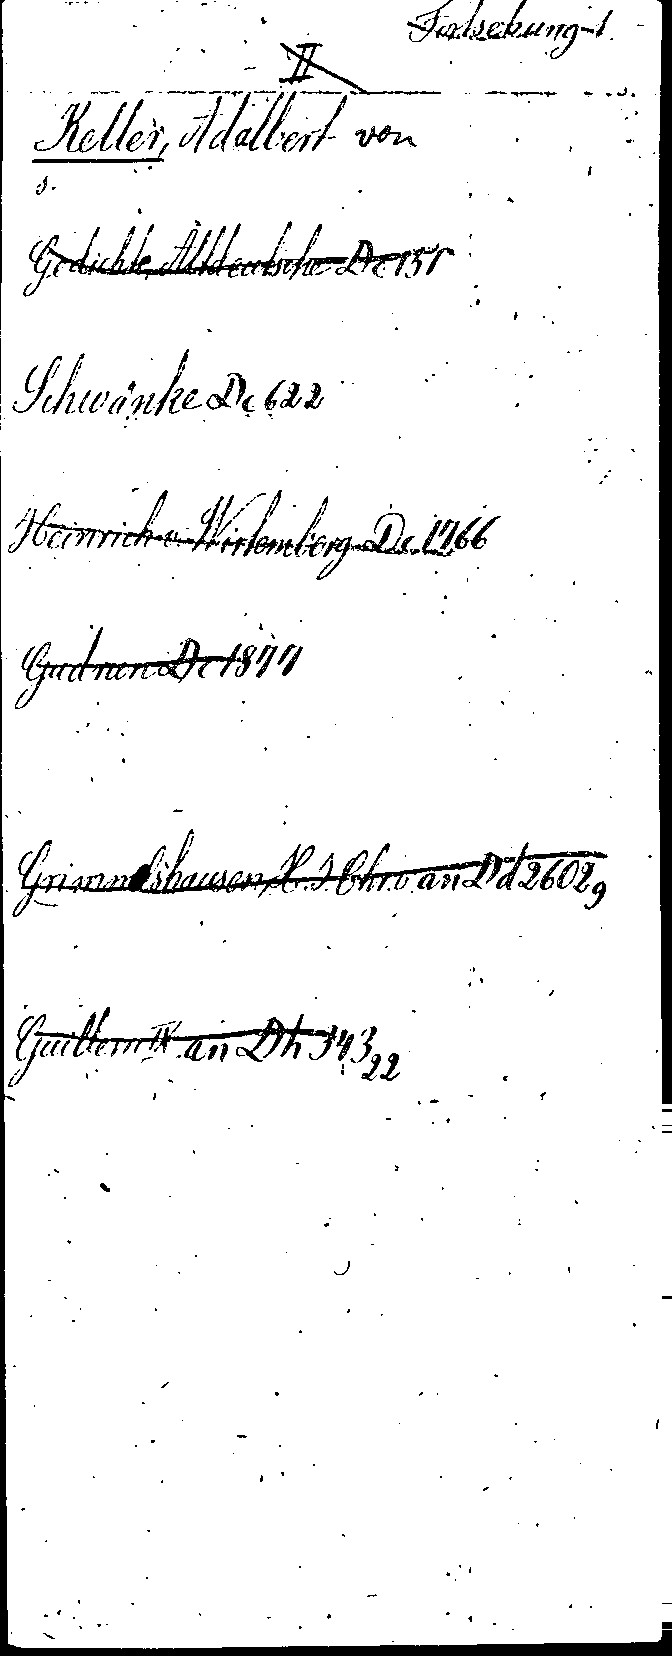 Fortsetzung 1.
II
Keller, Adalbert von
s.
Gedichte, Altdeutsche Dc 151
Schwänke Dc 622
Heinrich v. Wirtemberg Dc 1766
Gudrun Dc 1877
Grimmelshausen, H. J. Chr. v. an Dd 2602 9
Guillem IX an Dh 343 22